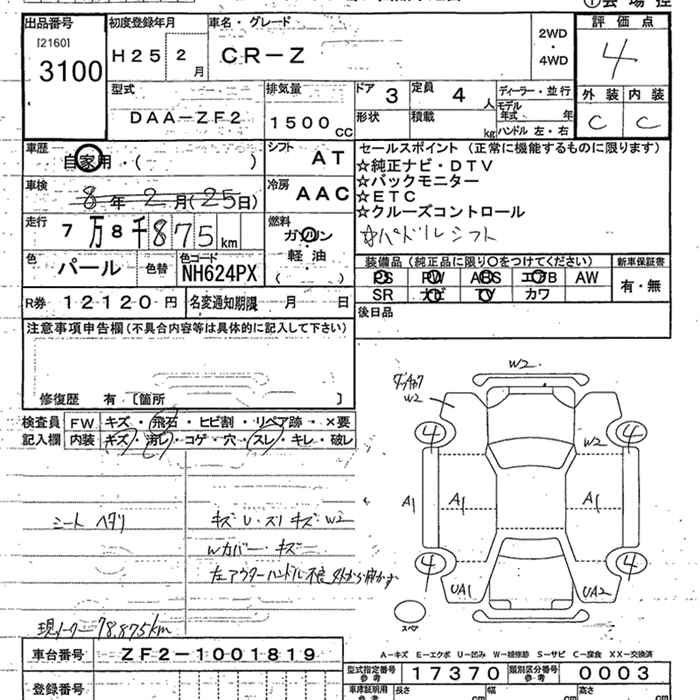 出品番号
[2160]
3100
初度登録年月
H25 2 月
車名・グレード
CR-Z
2WD
・
4WD
評価点
4
型式
DAA-ZF2
排気量
1500 cc
ドア 3
定員 4 人
形状
積載 kg
ディーラー・並行
モデル
年式 年
ハンドル 左・右
外装 内装
C C
車歴
自家用・( )
シフト AT
車検
8年2月(25日)
冷房 AAC
走行 7万8千875km
燃料
ガソリン
・
軽油
( )
色 パール
色替
色コード NH624PX
R券 12120円
名変通知期限 月 日
セールスポイント (正常に機能するものに限ります)
☆純正ナビ・DTV
☆バックモニター
☆ETC
☆クルーズコントロール
☆パドルシフト
装備品(純正品に限り○をつけてください)
新車保証書
PS PW ABS エアB AW
SR ナビ TV カワ
有・無
後日品
注意事項申告欄(不具合内容等は具体的に記入して下さい)
修復歴 有 〔箇所 〕
検査員
記入欄
FW キズ・飛石・ヒビ割・リペア跡・×要
内装 キズ・汚レ・コゲ・穴・スレ・キレ・破レ
シート ヘタリ
キズ U・スリキズ W2
Wカバー キズ
左アウターハンドル不良 外から開かず
現メーター 78,875km
W2
W2
4 4
W2
A1 A1 A1
4 4
UA1 UA2
スペア
A-キズ E-エクボ U-凹み W-補修跡 S-サビ C-腐食 XX-交換済
車台番号 ZF2-1001819
登録番号
型式指定番号
参考
17370
類別区分番号
参考
0003
車庫証明用
参考
長さ cm
幅 cm
高さ cm